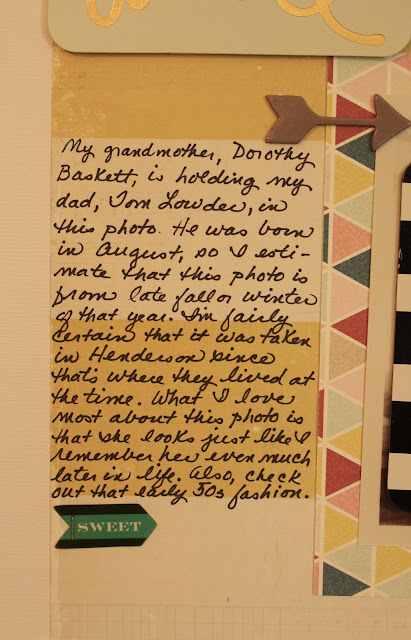 My grandmother, Dorothy
Baskett, is holding my
dad, Tom Lowder, in
this photo. He was born
in August, so I esti-
mate that this photo is
from late fall or winter
of that year. I'm fairly
certain that it was taken
in Henderson since
that's where they lived at
the time. What I love
most about this photo is
that she looks just like I
remember her even much
later in life. Also, check
out that early 50s fashion.
SWEET